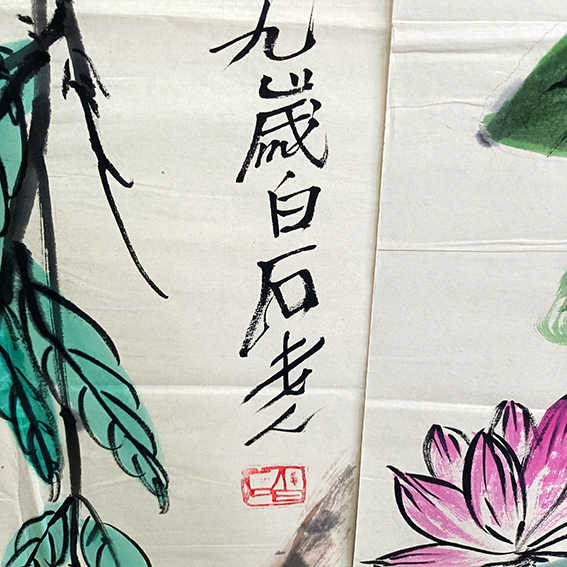 九歲白石老人